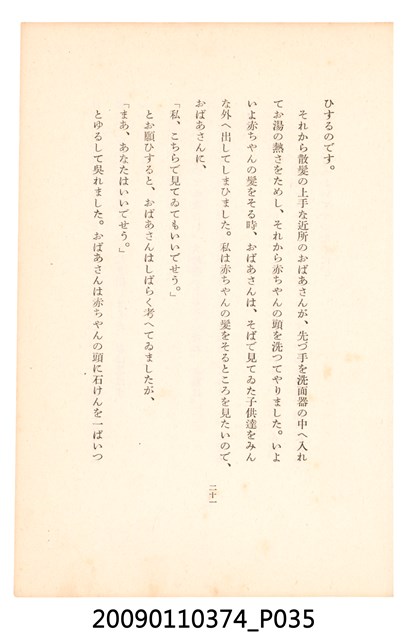 ひするのです。
それから散髮の上手な近所のおばあさんが、先づ手を洗面器の中へ入れ
てお湯の熱さをためし、それから赤ちやんの頭を洗つてやりました。いよ
いよ赤ちやんの髮をそる時、おばあさんは、そばで見てゐた子供達をみん
な外へ出してしまひました。私は赤ちやんの髮をそるところを見たいので、
おばあさんに、
「私、こちらで見てゐてもいいでせう。」
とお願ひすると、おばあさんはしばらく考へてゐましたが、
「まあ、あなたはいいでせう。」
とゆるして呉れました。おばあさんは赤ちやんの頭に石けんを一ぱいつ
二十一
20090110374_P035